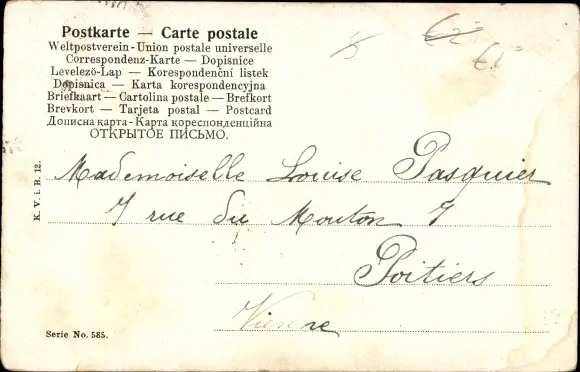 Postkarte — Carte postale
Weltpostverein - Union postale universelle
Correspondenz-Karte — Dopisnice
Levelezö-Lap — Korespondenční listek
Dopisnica — Karta korespondencyjna
Briefkaart — Cartolina postale — Brefkort
Brevkort — Tarjeta postal — Postcard
Дописна карта - Карта кореспонденційна
ОТКРЫТОЕ ПИСЬМО.
K. V. i. B. 12.
Mademoiselle Louise Pasquier
7 rue du Mouton 7
Poitiers
Vienne
Serie No. 585.